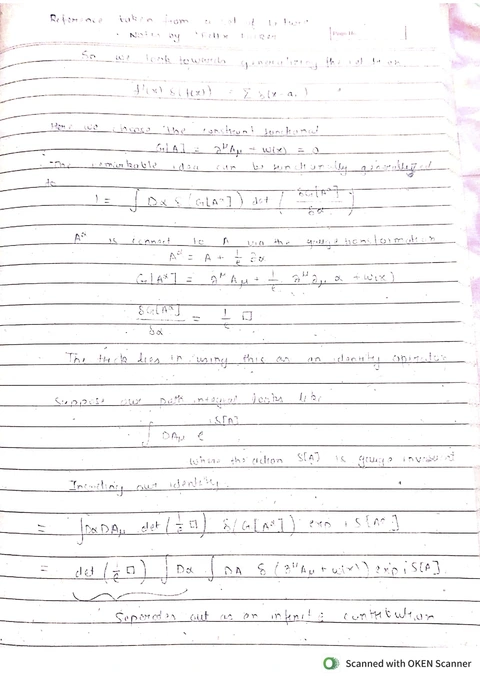 Reference taken from a set of lecture
Notes by
So we look towards generalising the relation
f'(x) δ(f(x)) = Σ δ(x-aᵢ)
Here we choose the constraint functional
G[A] = ∂^μ A_μ + w(x) = 0
The remarkable idea can be functionally generalized
to
1 = ∫ Dα δ(G[A^α]) det ( δG[A^α] / δα )
A^α is connect to A via the gauge transformation
A^α = A + 1/e ∂α
G[A^α] = ∂^μ A_μ + 1/e ∂^μ ∂_μ α + w(x)
δG[A^α] / δα = 1/e □
The trick lies in using this as an identity operator
Suppose our path integral looks like
∫ DA_μ e^{iS[A]}
where the action S[A] is gauge invariant
Inserting our identity
= ∫ Dα DA_μ det (1/e □) δ(G[A^α]) exp i S[A^α]
= det (1/e □) ∫ Dα ∫ DA δ (∂^μ A_μ + w(x)) exp i S[A]
Separates out as an infinite contribution
Scanned with OKEN Scanner